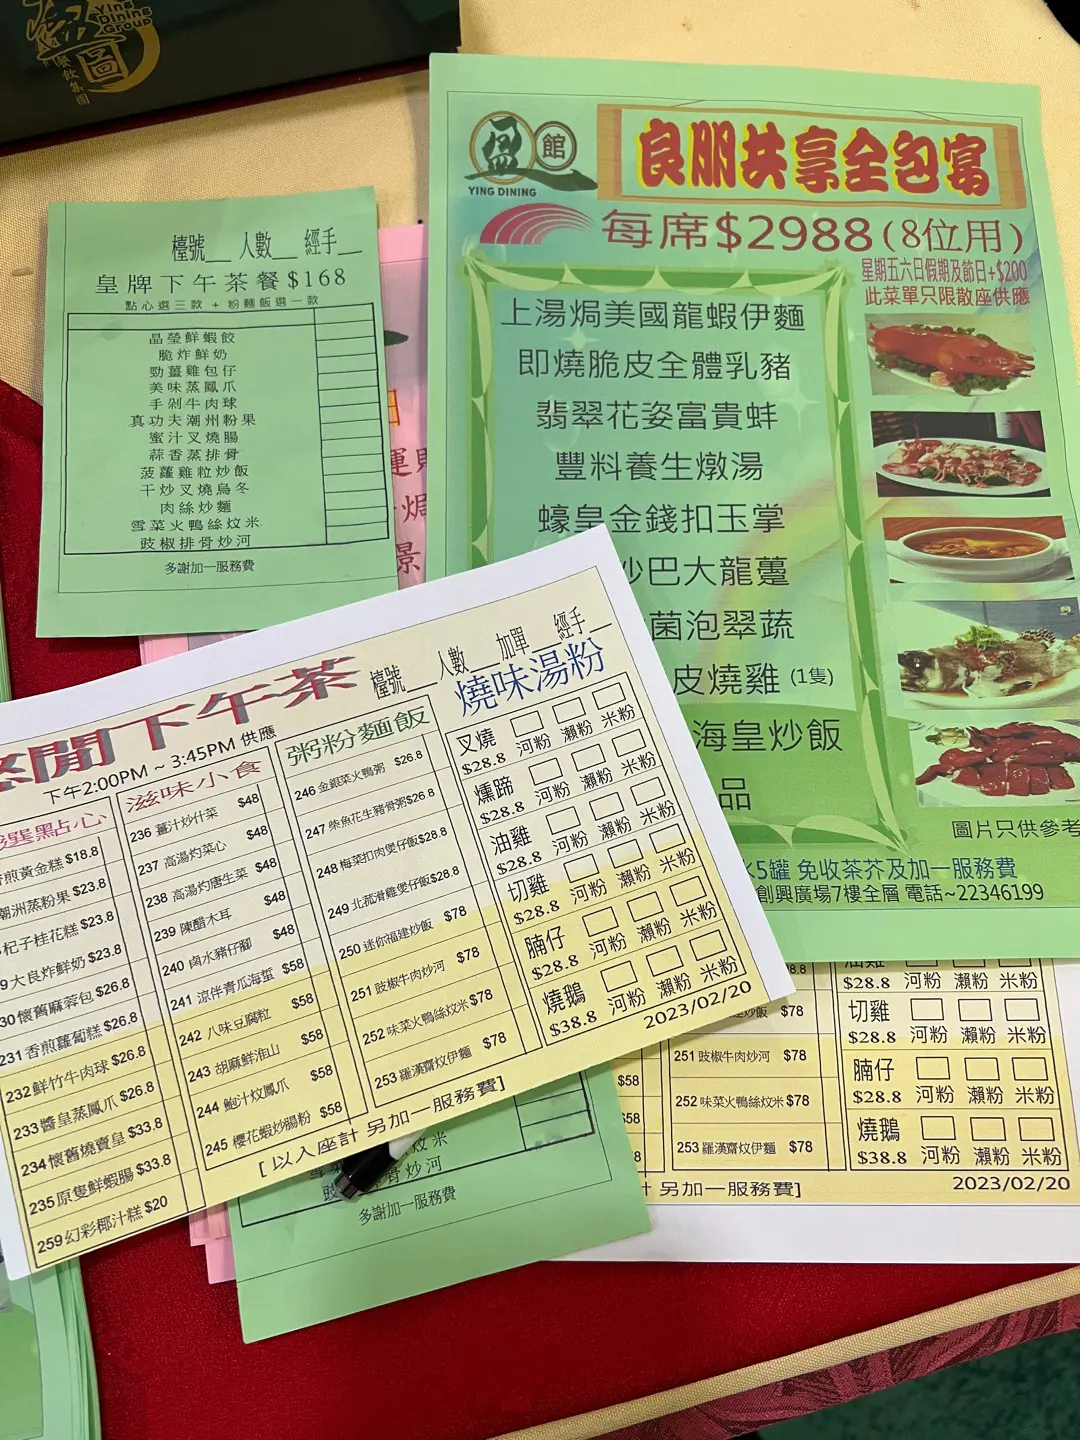 Ying
Dining
Group
圖
餐飲集團
盈館
YING DINING
良朋共享全包宴
每席$2988(8位用)
星期五六日假期及節日+$200
此菜單只限散座供應
上湯焗美國龍蝦伊麵
即燒脆皮全體乳豬
翡翠花姿富貴蚌
豐料養生燉湯
蠔皇金錢扣玉掌
沙巴大龍躉
菌泡翠蔬
皮燒雞 (1隻)
海皇炒飯
品
圖片只供參考
5罐 免收茶芥及加一服務費
創興廣場7樓全層 電話~22346199
檯號__ 人數__ 經手__
皇牌下午茶餐$168
點心選三款 + 粉麵飯選一款
晶瑩鮮蝦餃
脆炸鮮奶
勁薑雞包仔
美味蒸鳳爪
手剁牛肉球
真功夫潮州粉果
蜜汁叉燒腸
蒜香蒸排骨
菠蘿雞粒炒飯
干炒叉燒烏冬
肉絲炒麵
雪菜火鴨絲炆米
豉椒排骨炒河
多謝加一服務費
焗
景
閒下午茶
檯號__ 人數__ 加單__ 經手__
下午2:00PM ~ 3:45PM 供應
選點心
煎黃金糕 $18.8
潮洲蒸粉果 $23.8
杞子桂花糕 $23.8
9 大良炸鮮奶 $23.8
30 懷舊麻蓉包 $26.8
231 香煎蘿蔔糕 $26.8
232 鮮竹牛肉球 $26.8
233 醬皇蒸鳳爪 $26.8
234 懷舊燒賣皇 $33.8
235 原隻鮮蝦腸 $33.8
259 幻彩椰汁糕 $20
滋味小食
236 薑汁炒什菜 $48
237 高湯灼菜心 $48
238 高湯灼唐生菜 $48
239 陳醋木耳 $48
240 鹵水豬仔腳 $48
241 涼伴青瓜海蜇 $58
242 八味豆腐粒 $58
243 胡麻鮮淮山 $58
244 鮑汁炆鳳爪 $58
245 櫻花蝦炒腸粉 $58
粥粉麵飯
246 金銀菜火鴨粥 $26.8
247 柴魚花生豬骨粥 $26.8
248 梅菜扣肉煲仔飯 $28.8
249 北菰滑雞煲仔飯 $28.8
250 迷你福建炒飯 $78
251 豉椒牛肉炒河 $78
252 味菜火鴨絲炆米 $78
253 羅漢齋炆伊麵 $78
燒味湯粉
叉燒 $28.8 河粉 瀨粉 米粉
燻蹄 $28.8 河粉 瀨粉 米粉
油雞 $28.8 河粉 瀨粉 米粉
切雞 $28.8 河粉 瀨粉 米粉
腩仔 $28.8 河粉 瀨粉 米粉
燒鵝 $38.8 河粉 瀨粉 米粉
[以入座計 另加一服務費]
2023/02/20
炒飯 $78
251 豉椒牛肉炒河 $78
252 味菜火鴨絲炆米 $78
253 羅漢齋炆伊麵 $78
$58
$58
油雞
28.8 河粉 瀨粉 米粉
切雞 $28.8 河粉 瀨粉 米粉
腩仔 $28.8 河粉 瀨粉 米粉
燒鵝 $38.8 河粉 瀨粉 米粉
計 另加一服務費]
2023/02/20
炆米
豉 骨炒河
多謝加一服務費